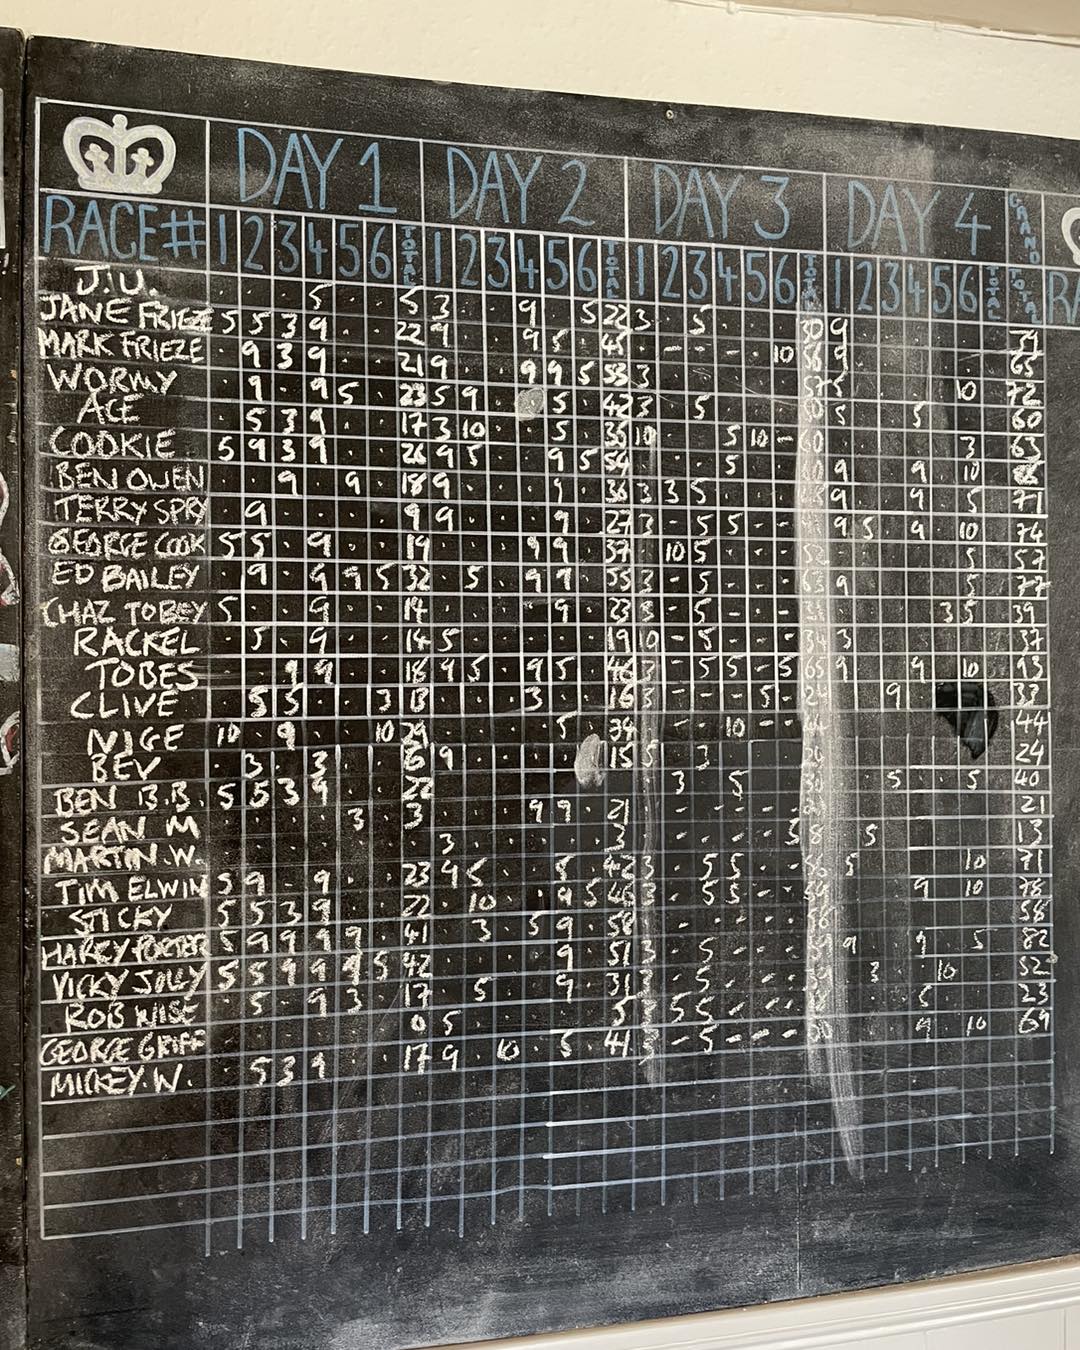 DAY 1 DAY 2 DAY 3 DAY 4 GRAND TOTAL
RACE# 1 2 3 4 5 6 TOTAL 1 2 3 4 5 6 TOTAL 1 2 3 4 5 6 TOTAL 1 2 3 4 5 6 TOTAL
J.U. · · · 5 · · 5 3 · · 9 · 5 22 3 · 5 30 9 39
JANE FRIEZE 5 5 3 9 · · 22 9 · · · 9 5 · 45 · - · - 10 56 9 65
MARK FRIEZE · 9 3 9 · · 21 9 · · 9 9 5 53 3 · · · · · 57 5 · · · 10 72
WORMY · 9 · 9 5 · 23 5 9 · · 5 · 42 3 · 5 · · · 5 · · 5 · · 60
ACE · 5 3 9 · · 17 3 10 · · 5 · 35 10 · · 5 10 - 60 3 63
COOKIE 5 9 3 9 · · 26 9 5 · · 9 5 54 · · · 5 · · 9 · · 9 · 10
BEN OWEN · · 9 · 9 · 18 9 · · · 9 · 36 3 3 5 · · · 9 · · 9 · 5 71
TERRY SPRY · 9 · · · · 9 9 · · · 9 · 27 3 - 5 5 - - 9 5 · 9 · 10 74
GEORGE COOK 5 5 · 9 · · 19 · · · 9 9 · 37 · 10 5 · · · 52 · · · · 5 57
ED BAILEY · 9 · 9 9 5 32 · 5 · 9 9 · 55 3 - 5 · · · 63 9 · · · · 5 77
CHAZ TOBEY 5 · · 9 · · 14 · · · · 9 · 23 3 - 5 - · · 31 · · · · 3 5 39
RACKEL · 5 · 9 · · 14 5 · · · · · 19 10 - 5 · · · 34 3 · · · · · 37
TOBES · · 9 9 · · 18 9 5 · 9 5 · 46 3 · 5 5 - 5 65 9 · · 9 · 10 93
CLIVE · 5 5 · · 3 13 · · · 3 · · 16 3 - - - 5 - 24 · · 9 · 33
NIGE 10 · 9 · · 10 29 · · · · 5 · 34 · - - 10 - - 44 44
BEV · 3 · 3 · · 6 9 · · · · 15 5 · 3 · · · 24
BEN B.B. 5 5 3 9 · · 22 3 · 5 · · 30 · 5 · · 5 40
SEAN M · · · · 3 · 3 · · · 9 9 · 21 21
MARTIN.W. · · · · · · · 3 · · · · · 3 · - · - - 5 8 · 5 13
TIM ELWIN 5 9 · 9 · · 23 9 5 · · 5 · 42 3 · 5 5 - · 56 5 · · · 10 71
STICKY 5 5 3 9 · · 22 · 10 · · 9 5 46 3 · 5 5 - - 59 · · 9 · 10 78
HARRY PORTER 5 9 9 9 9 · 41 · · 3 · 5 9 58 · - - - - - 58 58
VICKY JOLLY 5 5 9 9 9 5 42 · · · · 9 · 51 3 - 5 - - - 59 9 · · 9 · 5 82
ROB WISE · 5 · 9 3 · 17 · 5 · · 9 · 31 3 · 5 · · · 39 · 3 · · 10 · 52
GEORGE GRIFF · · · · · · 0 5 · · · · · 5 3 5 5 - - - 18 · · · 5 · · 23
MICKEY.W. · 5 3 9 · · 17 9 · 10 · 5 · 41 3 - 5 - - - 50 · · · 9 · 10 69
RA